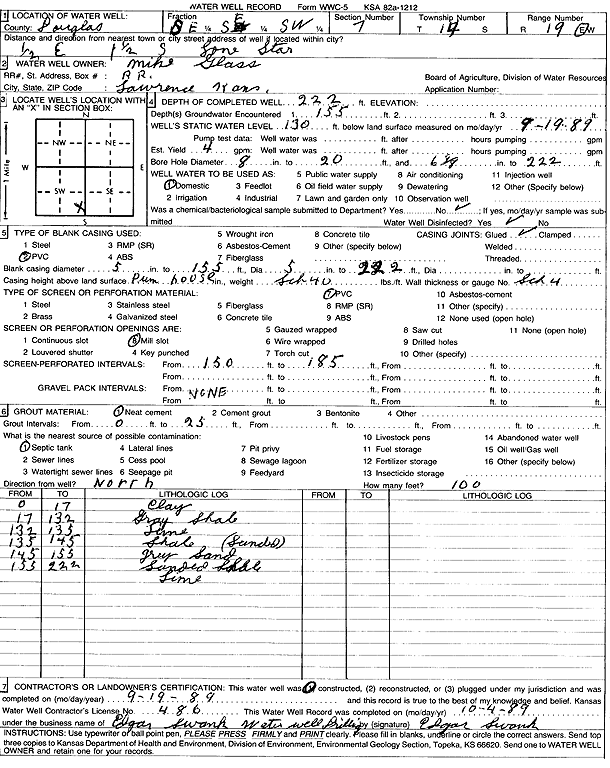 WATER WELL RECORD Form WWC-5 KSA 82a-1212
1 LOCATION OF WATER WELL: Fraction Section Number Township Number Range Number
County: Douglas SE SW ¼ 7 T 14 S R 19 E/W
Distance and direction from nearest town or city street address of well if located within city?
½ E 1½ S Lone Star
2 WATER WELL OWNER: Mike Glass
RR#, St. Address, Box # : RR. Board of Agriculture, Division of Water Resources
City, State, ZIP Code : Lawrence Kans. Application Number:
3 LOCATE WELL'S LOCATION WITH AN "X" IN SECTION BOX:
N
NW NE
W E
SW SE
X
S
1 Mile
4 DEPTH OF COMPLETED WELL 222 ft. ELEVATION:
Depth(s) Groundwater Encountered 1. 155 ft. 2. ft. 3. ft.
WELL'S STATIC WATER LEVEL 130 ft. below land surface measured on mo/day/yr 9-19-89
Pump test data: Well water was ft. after hours pumping gpm
Est. Yield 4 gpm: Well water was ft. after hours pumping gpm
Bore Hole Diameter 8 in. to 20 ft., and 6 3/4 in. to 222 ft.
WELL WATER TO BE USED AS: 5 Public water supply 8 Air conditioning 11 Injection well
1 Domestic 3 Feedlot 6 Oil field water supply 9 Dewatering 12 Other (Specify below)
2 Irrigation 4 Industrial 7 Lawn and garden only 10 Observation well
Was a chemical/bacteriological sample submitted to Department? Yes No ✓; If yes, mo/day/yr sample was submitted
Water Well Disinfected? Yes ✓ No
5 TYPE OF BLANK CASING USED: 5 Wrought iron 8 Concrete tile CASING JOINTS: Glued ✓ Clamped
1 Steel 3 RMP (SR) 6 Asbestos-Cement 9 Other (specify below) Welded
2 PVC 4 ABS 7 Fiberglass Threaded
Blank casing diameter 5 in. to 155 ft., Dia 5 in. to 222 ft., Dia in. to ft.
Casing height above land surface in., weight Sch 40 lbs./ft. Wall thickness or gauge No. Sch 4
TYPE OF SCREEN OR PERFORATION MATERIAL: 7 PVC 10 Asbestos-cement
1 Steel 3 Stainless steel 5 Fiberglass 8 RMP (SR) 11 Other (specify)
2 Brass 4 Galvanized steel 6 Concrete tile 9 ABS 12 None used (open hole)
SCREEN OR PERFORATION OPENINGS ARE: 5 Gauzed wrapped 8 Saw cut 11 None (open hole)
1 Continuous slot 3 Mill slot 6 Wire wrapped 9 Drilled holes
2 Louvered shutter 4 Key punched 7 Torch cut 10 Other (specify)
SCREEN-PERFORATED INTERVALS: From 150 ft. to 185 ft., From ft. to ft.
From ft. to ft., From ft. to ft.
GRAVEL PACK INTERVALS: From NONE ft. to ft., From ft. to ft.
From ft. to ft., From ft. to ft.
6 GROUT MATERIAL: 1 Neat cement 2 Cement grout 3 Bentonite 4 Other
Grout Intervals: From 0 ft. to 25 ft., From ft. to ft., From ft. to ft.
What is the nearest source of possible contamination: 10 Livestock pens 14 Abandoned water well
1 Septic tank 4 Lateral lines 7 Pit privy 11 Fuel storage 15 Oil well/Gas well
2 Sewer lines 5 Cess pool 8 Sewage lagoon 12 Fertilizer storage 16 Other (specify below)
3 Watertight sewer lines 6 Seepage pit 9 Feedyard 13 Insecticide storage
Direction from well? North How many feet? 100
FROM TO LITHOLOGIC LOG FROM TO LITHOLOGIC LOG
0 17 Clay
17 132 Gray Shale
132 135 Lime
135 145 Shale (Sanded)
145 155 Grey Sand
155 222 Sanded Shale
Lime
7 CONTRACTOR'S OR LANDOWNER'S CERTIFICATION: This water well was (1) constructed, (2) reconstructed, or (3) plugged under my jurisdiction and was
completed on (mo/day/year) 9-19-89 and this record is true to the best of my knowledge and belief. Kansas
Water Well Contractor's License No. 486 This Water Well Record was completed on (mo/day/yr) 10-4-89
under the business name of Edgar Swank Water well Drilling by (signature) Edgar Swank
INSTRUCTIONS: Use typewriter or ball point pen, PLEASE PRESS FIRMLY and PRINT clearly. Please fill in blanks, underline or circle the correct answers. Send top
three copies to Kansas Department of Health and Environment, Division of Environment, Environmental Geology Section, Topeka, KS 66620. Send one to WATER WELL
OWNER and retain one for your records.